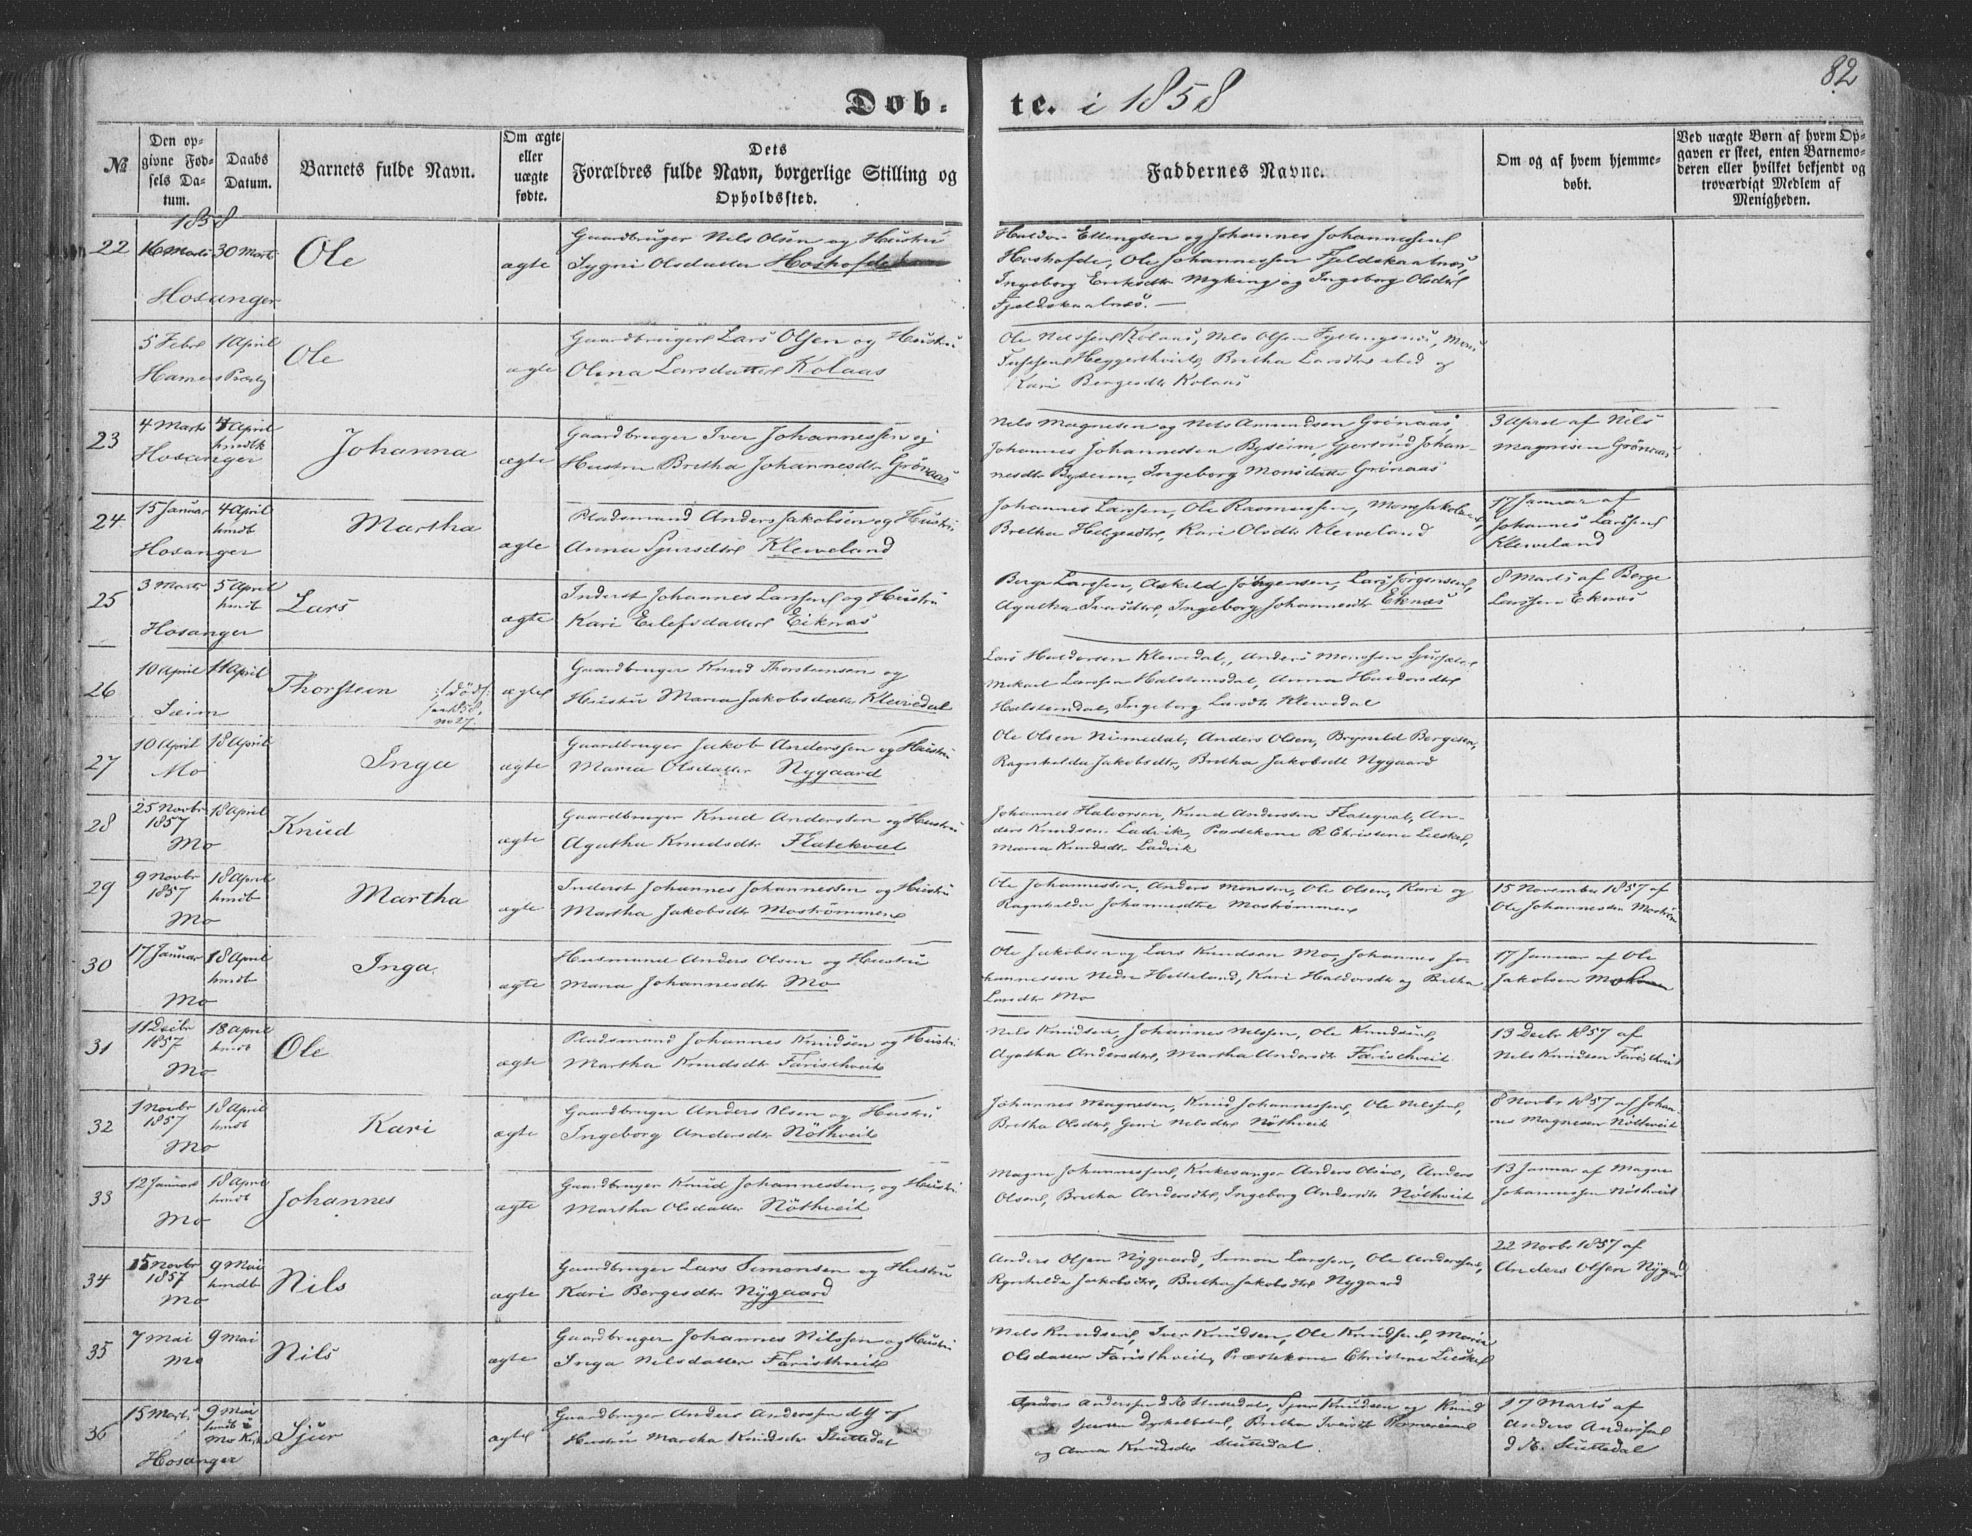 82
Dob-te. i 1858
№
Den opgivne Fødsels Datum.
Daabs Datum.
Barnets fulde Navn.
Om ægte eller uægte fødte.
Dets Forældres fulde Navn, borgerlige Stilling og Opholdssted.
Faddernes Navne.
Om og af hvem hjemmedøbt.
Ved uægte Børn af hvem Opgaven er skeet, enten Barnemoderen eller hvilket bekjendt og troværdigt Medlem af Menigheden.
1858
22 16 Marts 30 Marts Ole ægte Gaardbruger Nils Olsen og Hustru
Hosanger Sygni Olsdatter Hoshofde
Haldor Ellingsen og Johannes Johannessen
Hoshofde, Ole Johannessen Fjeldskaalnæs,
Ingeborg Eriksdtr Myking og Ingeborg Olsdtr
Fjeldskaalnæs.
5 Febr 1 April Ole ægte Gaardbruger Lars Olsen og Hustru
Hamers Præstg Olena Larsdatter Kolaas
Ole Nelssen Kolaas, Nils Olsen
Heggerthveit, Brithe Larsdtr ibid og
Kari Bergesdtr Kolaas
23 4 Marts 4 April hmdbt Johanna ægte Gaardbruger Iver Johannessen og
Hosanger Hustru Brithe Johannesdtr Grönaas
Nels Magnesen og Nels Amundsen Grönaas,
Johannes Johannessen Byseim, Gjertrud Johan-
nesdtr Byseim, Ingeborg Monsdatter Grönaas
3 April af Nils
Magnesen Grönaas
24 15 Januar 4 April hmdb Martha ægte Pladsmand Anders Jakobsen og Hustru
Hosanger Anna Sjursdtr Kleiveland
Johannes Larssen, Ole Rasmussen, Mons Jakobsen,
Brethe Helgesdtr, Kari Olsdtr Kleiveland
17 Januar af
Johannes Larssen
Kleiveland
25 3 Marts 5 April hmdb Lars ægte Inderst Johannes Larssen og Hustru
Hosanger Kari Eilefsdatter Eiknæs
Berge Larssen, Askild Jörgensen, Lars Jörgensen,
Agatha Iversdtr, Ingeborg Johannesdtr Eknæs
8 Marts af Berge
Larssen Eknæs
26 10 April 11 April Thorstein ægte Gaardbruger Knud Thorsteinsen og
Seim no 27. Hustru Maria Jakobsdatter Kleivedal
Lars Haldorsen Kleivedal, Anders Monssen
Mikael Larssen Halstensdal, Anna Haldorsdtr
Halstendal, Ingeborg Larsdtr Kleivedal
27 10 April 18 April Inga ægte Gaardbruger Jakob Anderssen og Hustru
Mo Maria Olsdatter Nygaard
Ole Olsen Nimedal, Anders Olsen, Brynild Bergesen,
Ragnhilda Jakobsdtr, Brithe Jakobsdt Nygaard
28 25 Novbr 1857 18 April Knud ægte Gaardbruger Knud Anderssen og Hustru
Mo Agatha Knudsdtr Flatekval
Johannes Halvorsen, Knud Anderssen Flatqval, An-
ders Knudsen Ladvik, Præstekone R Christine Lieskel,
Maria Knudsdtr Ladvik
29 9 Novbr 1857 18 April hmdb Martha ægte Inderst Johannes Johannessen og Hustru
Mo Martha Jakobsdtr Moströmmen
Ole Johannessen, Anders Monssen, Ole Olsen, Kari og
Ragnhilda Johannesdtr Moströmmen
15 November 1857 af
Ole Johannessen Moström
30 17 Januar 18 April hmdb Inga ægte Husmand Anders Olsen og Hustru
Mo Maria Johannesdtr Mo
Ole Jakobsen og Lars Knudsen Mo, Johannes Jo-
hannessen Nedre Helleland, Kari Haldorsdtr og Brithe
Larsdtr Mo
17 Januar af Ole
Jakobsen Mo
31 11 Decbr 1857 18 April hmdb Ole ægte Pladsmand Johannes Knudsen og Hustru
Mo Martha Knudsdtr Faristhveit
Nils Knudsen, Johannes Nelssen, Ole Knudsen,
Agatha Andersdtr, Martha Andersdtr Faristhveit
13 Decbr 1857 af
Nels Knudsen Faristhveit
32 1 Novbr 1857 18 April hmdb Kari ægte Gaardbruger Anders Olsen og Hustru
Mo Ingeborg Andersdtr Nöthveit
Johannes Magnesen, Knud Johannessen, Ole Nelssen,
Bretha Olsdtr, Guri Nelsdtr Nöthveit
8 Novbr 1857 af Johan-
nes Magnesen Nöthveit
33 12 Januar 18 April hmdb Johannes ægte Gaardbruger Knud Johannessen, og Hustru
Mo Martha Olsdatter Nöthveit
Magne Johannessen, Kirkesanger Anders Olsen, Anders
Olsen, Bretha Andersdtr, Ingeborg Andersdtr Nöthveit
13 Januar af Magne
Johannessen Nöthveit
34 15 Novbr 1857 9 Mai hmdb Nils ægte Gaardbruger Lars Simonsen og Hustru
Mo Kari Bergesdtr Nygaard
Anders Olsen Nygaard, Simon Larssen, Ole Anderssen,
Rgnhilda Jakobsdtr, Bretha Jakobsdtr Nygaard
22 Novbr 1857 af
Anders Olsen Nygaard
35 7 Mai 9 Mai Nils ægte Gaardbruger Johannes Nilssen og Hustru
Mo Inga Nelsdatter Faristhveit
Nels Knudsen, Iver Knudsen, Ole Knudsen, Maria
Olsdatter Faristhveit, Præstekone Christine Lieskel
36 15 Marts 9 Mai hmdb i Mo Kirke Sjur ægte Gaardbruger Anders Anderssen d Y og
Hosanger Hustru Martha Knudsdtr Sluttedal
Anders Anderssen d Æ Sluttedal, Sjur Knudsen og Knud
Bretha Iversdtr
og Anna Knudsdtr Sluttedal.
17 Marts af
Anders Anderssen
d Æ. Sluttedal